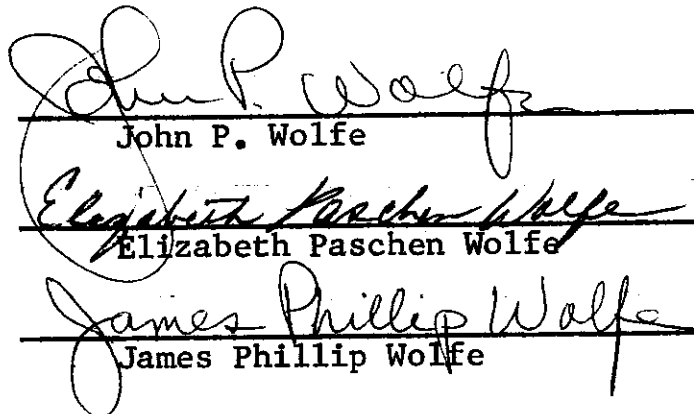 John P. Wolfe
John P. Wolfe
Elizabeth Paschen Wolfe
Elizabeth Paschen Wolfe
James Phillip Wolfe
James Phillip Wolfe